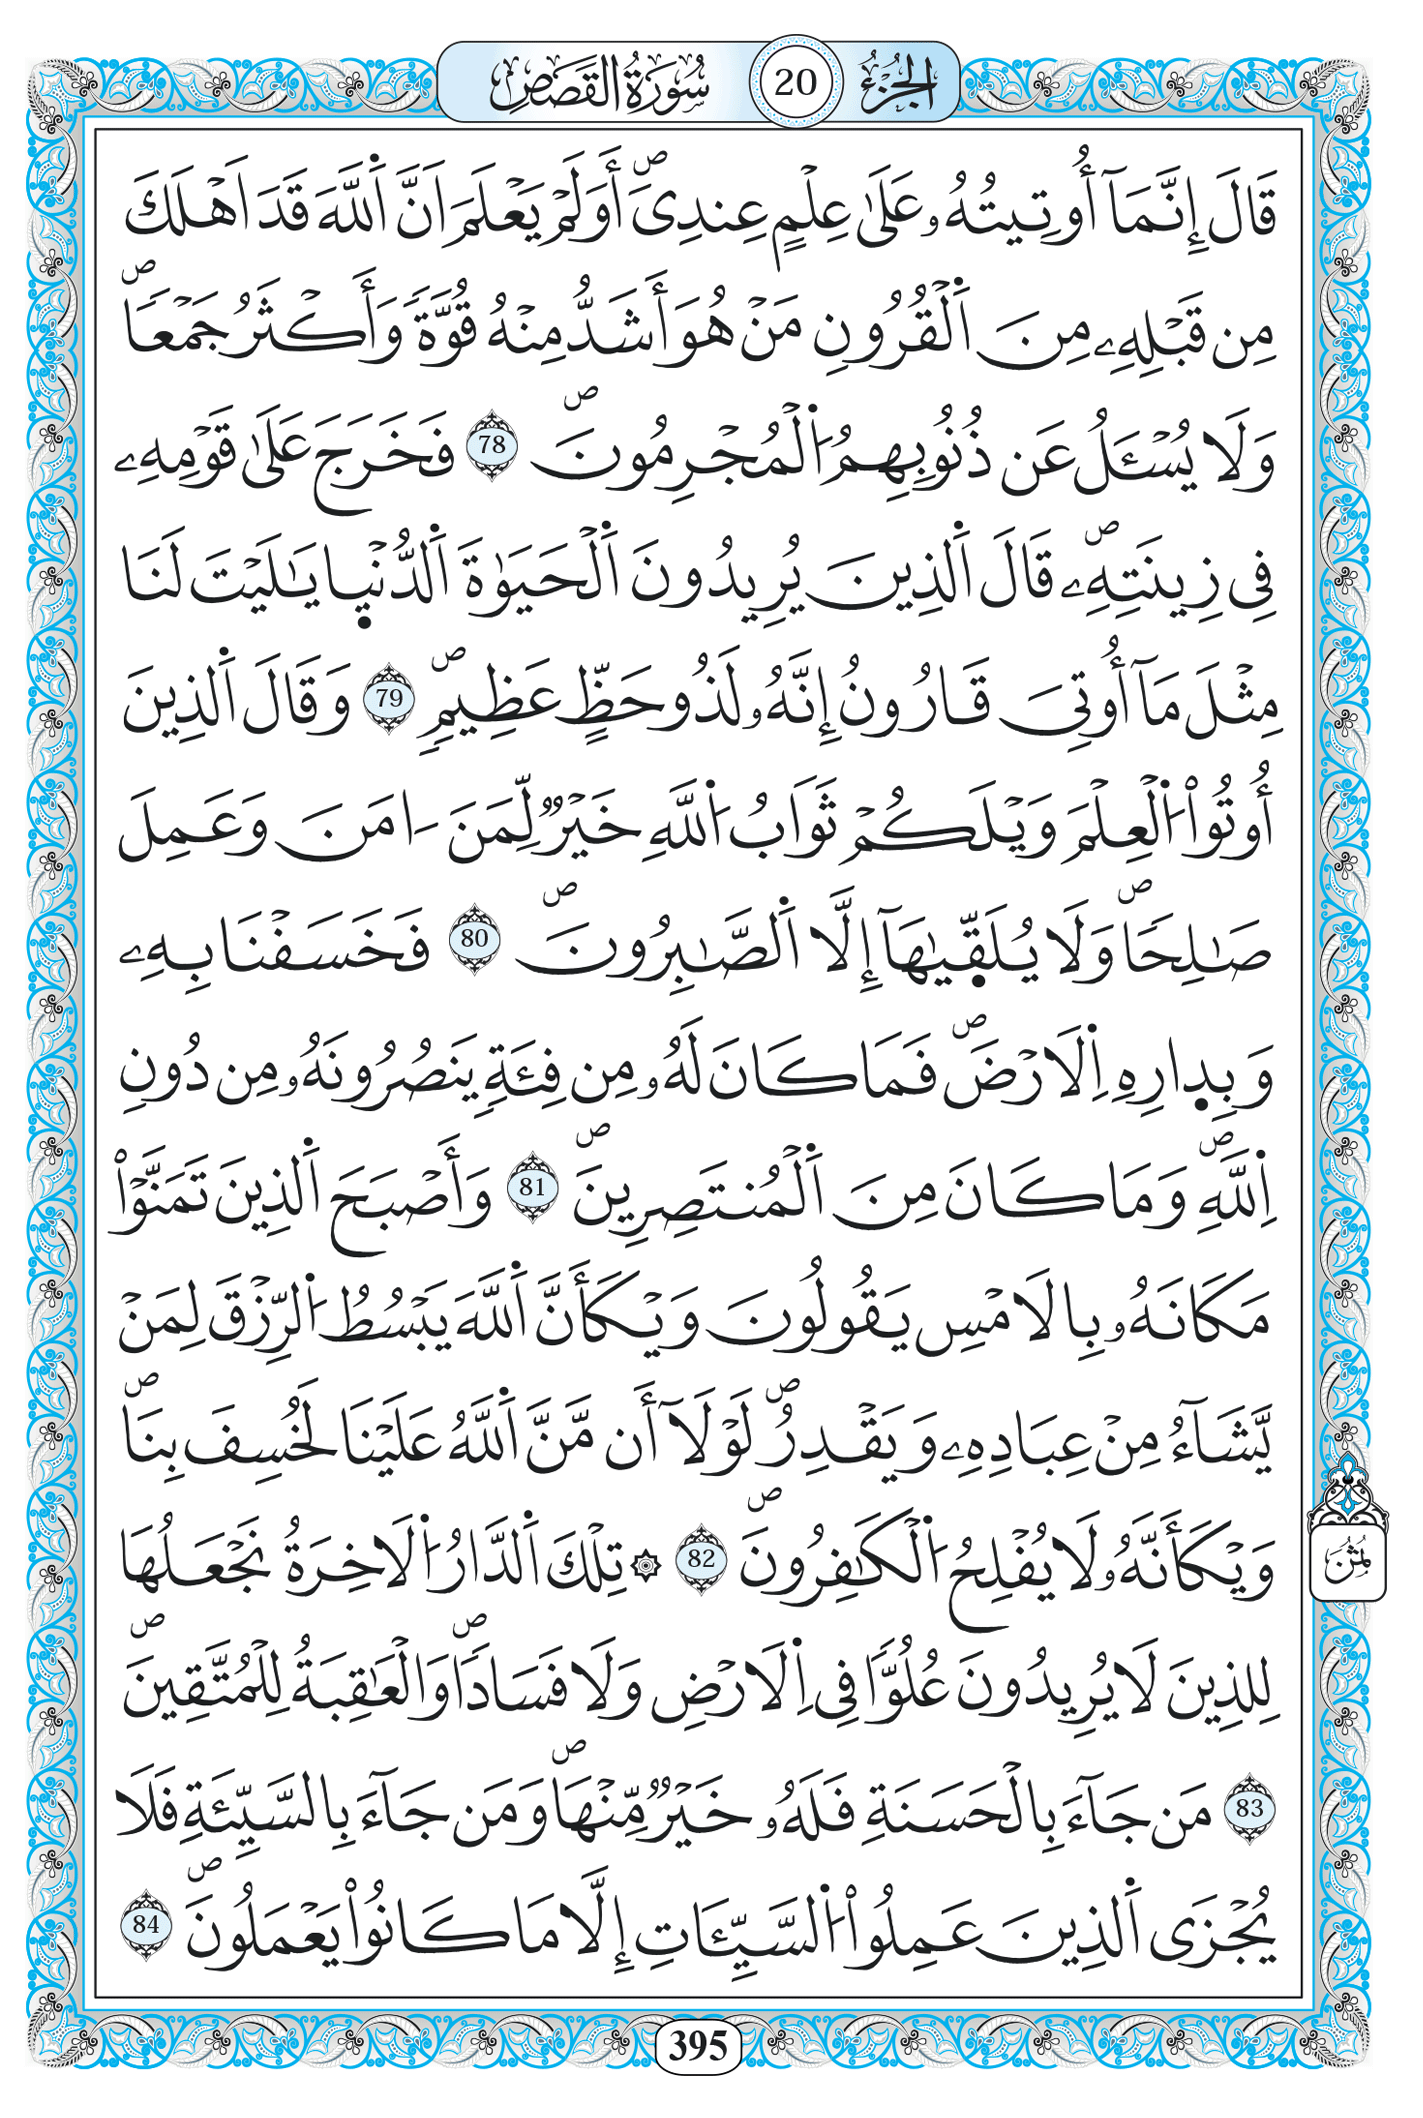 الجزء 20 سورة القصص
قَالَ إِنَّمَآ أُوتِيتُهُۥ عَلَىٰ عِلْمٍ عِندِىَۖ أَوَلَمْ يَعْلَمَ اَنَّ اَ۬للَّهَ قَدَ اَهْلَكَ
مِن قَبْلِهِۦ مِنَ اَ۬لْقُرُونِ مَنْ هُوَ أَشَدُّ مِنْهُ قُوَّةً وَأَكْثَرُ جَمْعاًۖ
وَلَا يُسْـَٔلُ عَن ذُنُوبِهِمُ اُ۬لْمُجْرِمُونَۖ 78 فَخَرَجَ عَلَىٰ قَوْمِهِۦ
فِى زِينَتِهِۦۖ قَالَ اَ۬لذِينَ يُرِيدُونَ اَ۬لْحَيَوٰةَ اَ۬لدُّنْي۪ا يَٰلَيْتَ لَنَا
مِثْلَ مَآ أُوتِىَ قَارُونُ إِنَّهُۥ لَذُو حَظٍّ عَظِيمٍۖ 79 وَقَالَ اَ۬لذِينَ
أُوتُواْ اُ۬لْعِلْمَ وَيْلَكُمْ ثَوَابُ اُ۬للَّهِ خَيْرٌ لِّمَنَ اٰمَنَ وَعَمِلَ
صَٰلِحاًۖ وَلَا يُلَقّ۪يٰهَآ إِلَّا اَ۬لصَّٰبِرُونَۖ 80 فَخَسَفْنَا بِهِۦ
وَبِد۪ارِهِ اِ۬لَارْضَۖ فَمَا كَانَ لَهُۥ مِن فِئَةٍ يَنصُرُونَهُۥ مِن دُونِ
اِ۬للَّهِۖ وَمَا كَانَ مِنَ اَ۬لْمُنتَصِرِينَۖ 81 وَأَصْبَحَ اَ۬لذِينَ تَمَنَّوْاْ
مَكَانَهُۥ بِالَامْسِ يَقُولُونَ وَيْكَأَنَّ اَ۬للَّهَ يَبْسُطُ اُ۬لرِّزْقَ لِمَنْ
يَّشَآءُ مِنْ عِبَادِهِۦ وَيَقْدِرُۖ لَوْلَآ أَن مَّنَّ اَ۬للَّهُ عَلَيْنَا لَخُسِفَ بِنَاۖ
وَيْكَأَنَّهُۥ لَا يُفْلِحُ اُ۬لْكَٰفِرُونَۖ 82 ۞ تِلْكَ اَ۬لدَّارُ اُ۬لَاخِرَةُ نَجْعَلُهَا
لِلذِينَ لَا يُرِيدُونَ عُلُوّاً فِى اِ۬لَارْضِ وَلَا فَسَاداًۖ وَالْعَٰقِبَةُ لِلْمُتَّقِينَۖ
83 مَن جَآءَ بِالْحَسَنَةِ فَلَهُۥ خَيْرٌ مِّنْهَاۖ وَمَن جَآءَ بِالسَّيِّئَةِ فَلَا
يُجْزَى اَ۬لذِينَ عَمِلُواْ اُ۬لسَّيِّـَٔاتِ إِلَّا مَا كَانُواْ يَعْمَلُونَۖ 84
ثمن
395